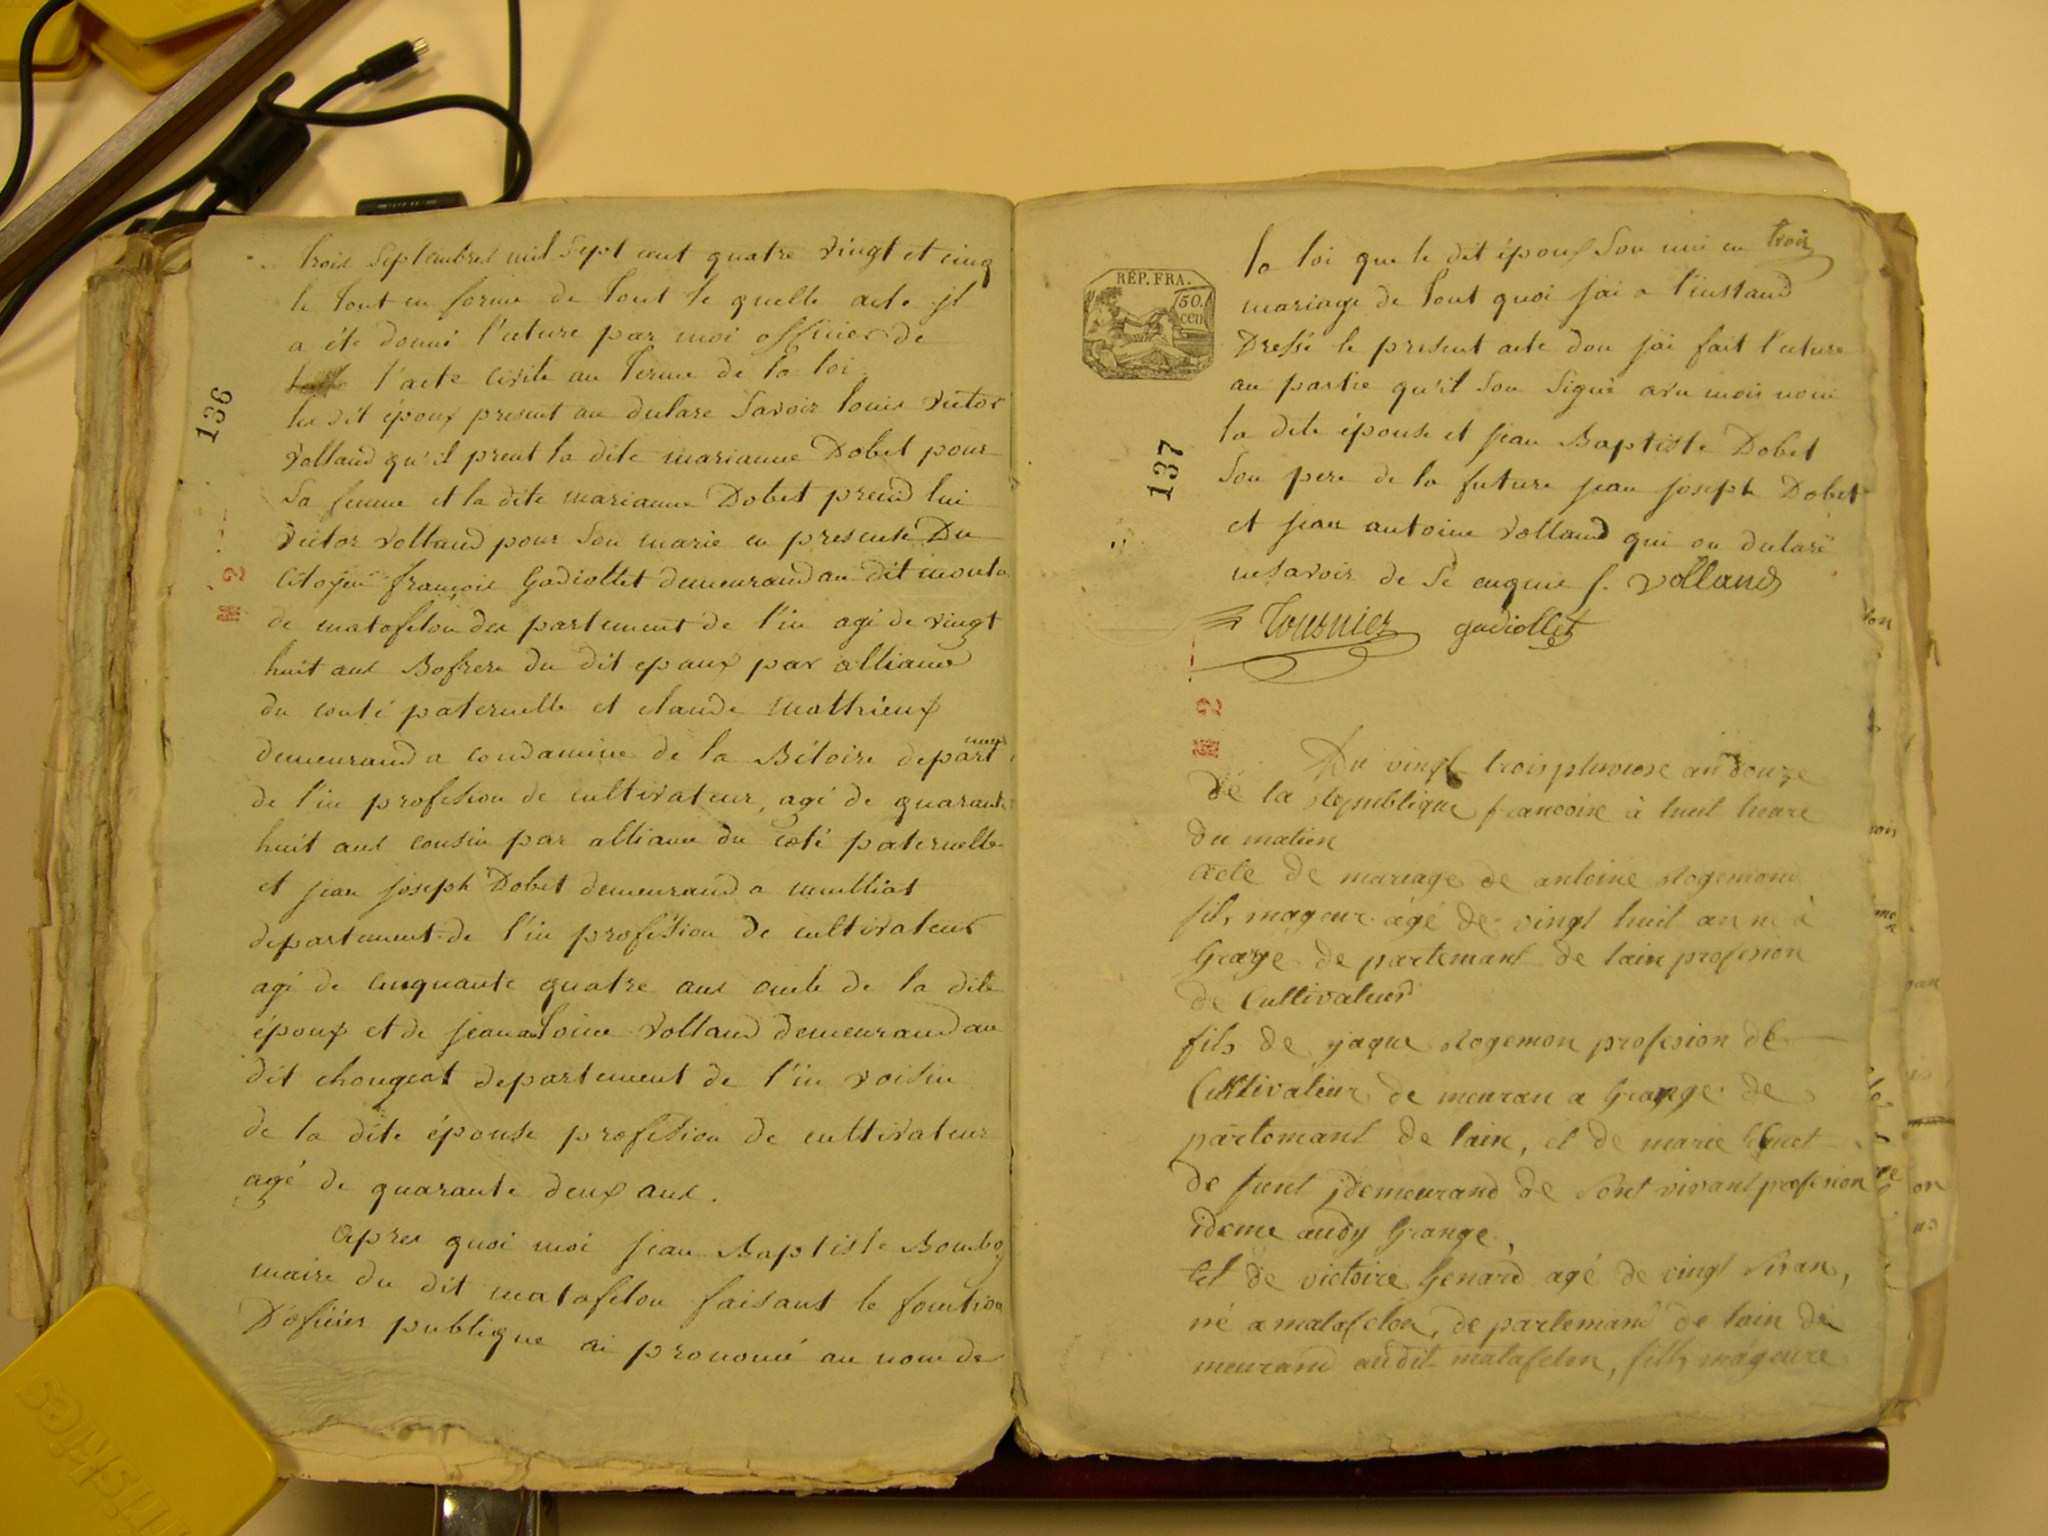 136
trois septembres mil sept cent quatre vingt et cinq
le tout en forme de tout le quelle acte jl
a été donné l'ecture par moi officier de
l'acte civile au terme de la loi
les dit époux present au dulare savoir louis victor
volland qu'il prent la dite marianne Dobet pour
sa femme et la dite marianne Dobet prend lui
victor volland pour son marie en presente Du
citoyen françois Gadiollet demeurand au dit
de matafelon des partement de l'in agé de vingt
huit ans Bofrere du dit epoux par alliance
du conté paternelle et claude mathieux
demeurand a condamine de la Bèloire depart
de l'in profession de cultivateur, agé de quarante
huit ans cousin par alliance du coté paternelle
et jean joseph Dobet demeurand a
departement de l'in profession de cultivateur
agé de cinquante quatre ans oncle de la dite
époux et de jean antoine volland demeurand au
dit chougeat departement de l'in voisin
de la dite épouse profession de cultivateur
agé de quarante deux ans.
Apres quoi moi jean Baptiste
maire du dit matafelon faisant le fonction
D'oficier publique ai prononcé au nom de
2
RÉP. FRA.
50.
cen
137
la loi que le dit époux son uni en trois
mariage de tout quoi jai a l'instand
Dressé le present acte don jai fait l'ecture
au partie qu'il son signé avec moi
la dite épouse et jean Baptiste Dobet
son pere de la future jean joseph Dobet
et jean antoine volland qui on dularé
ne savoir de ce enquie f. volland
Tournier gadiollet
2
Du vingt trois pluviose an douze
de la Republique francoise à huit heure
du matien
acte de mariage de antoine Rogemond
fils mageur agé de vingt huit an né à
Grange de partemant de lain profesion
de Cultivateur
fils de jaque Rogemon profesion de
Cultivateur de meuran a Grange de
partemant de lain, et de marie
de funt jdemeurand de sont vivant profesion
ideme audy Grange,
et de victoire Genard agé de vingt sis an,
né a matafelon, de partemant de lain de
meurand audit matafelon, fille mageure